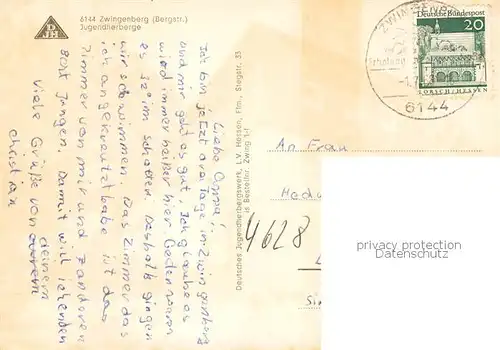 6144 Zwingenberg (Bergstr.)
Jugendherberge
DJH
Liebe Oma!
Ich bin jetzt drei Tage in Zwingenberg
und mir geht es gut. Ich glaube es
wird immer heißer hier. Gestern waren
es 32° im Schatten. Deshalb gingen
wir schwimmen. Das Zimmer das
ich angekreuzt habe ist das
Zimmer von mir und 7 anderen
8ckt Jungen. Damit will ich enden
Viele Grüße von deinem
Christian
Deutsches Jugendherbergswerk, L.V. Hessen, Ffm., Stegstr. 33
Bestellnr. Zwing 1-f
ZWINGENBERG
6144
Deutsche Bundespost
20
LORSCH/HESSEN
An Frau
4628
privacy protection
Datenschutz